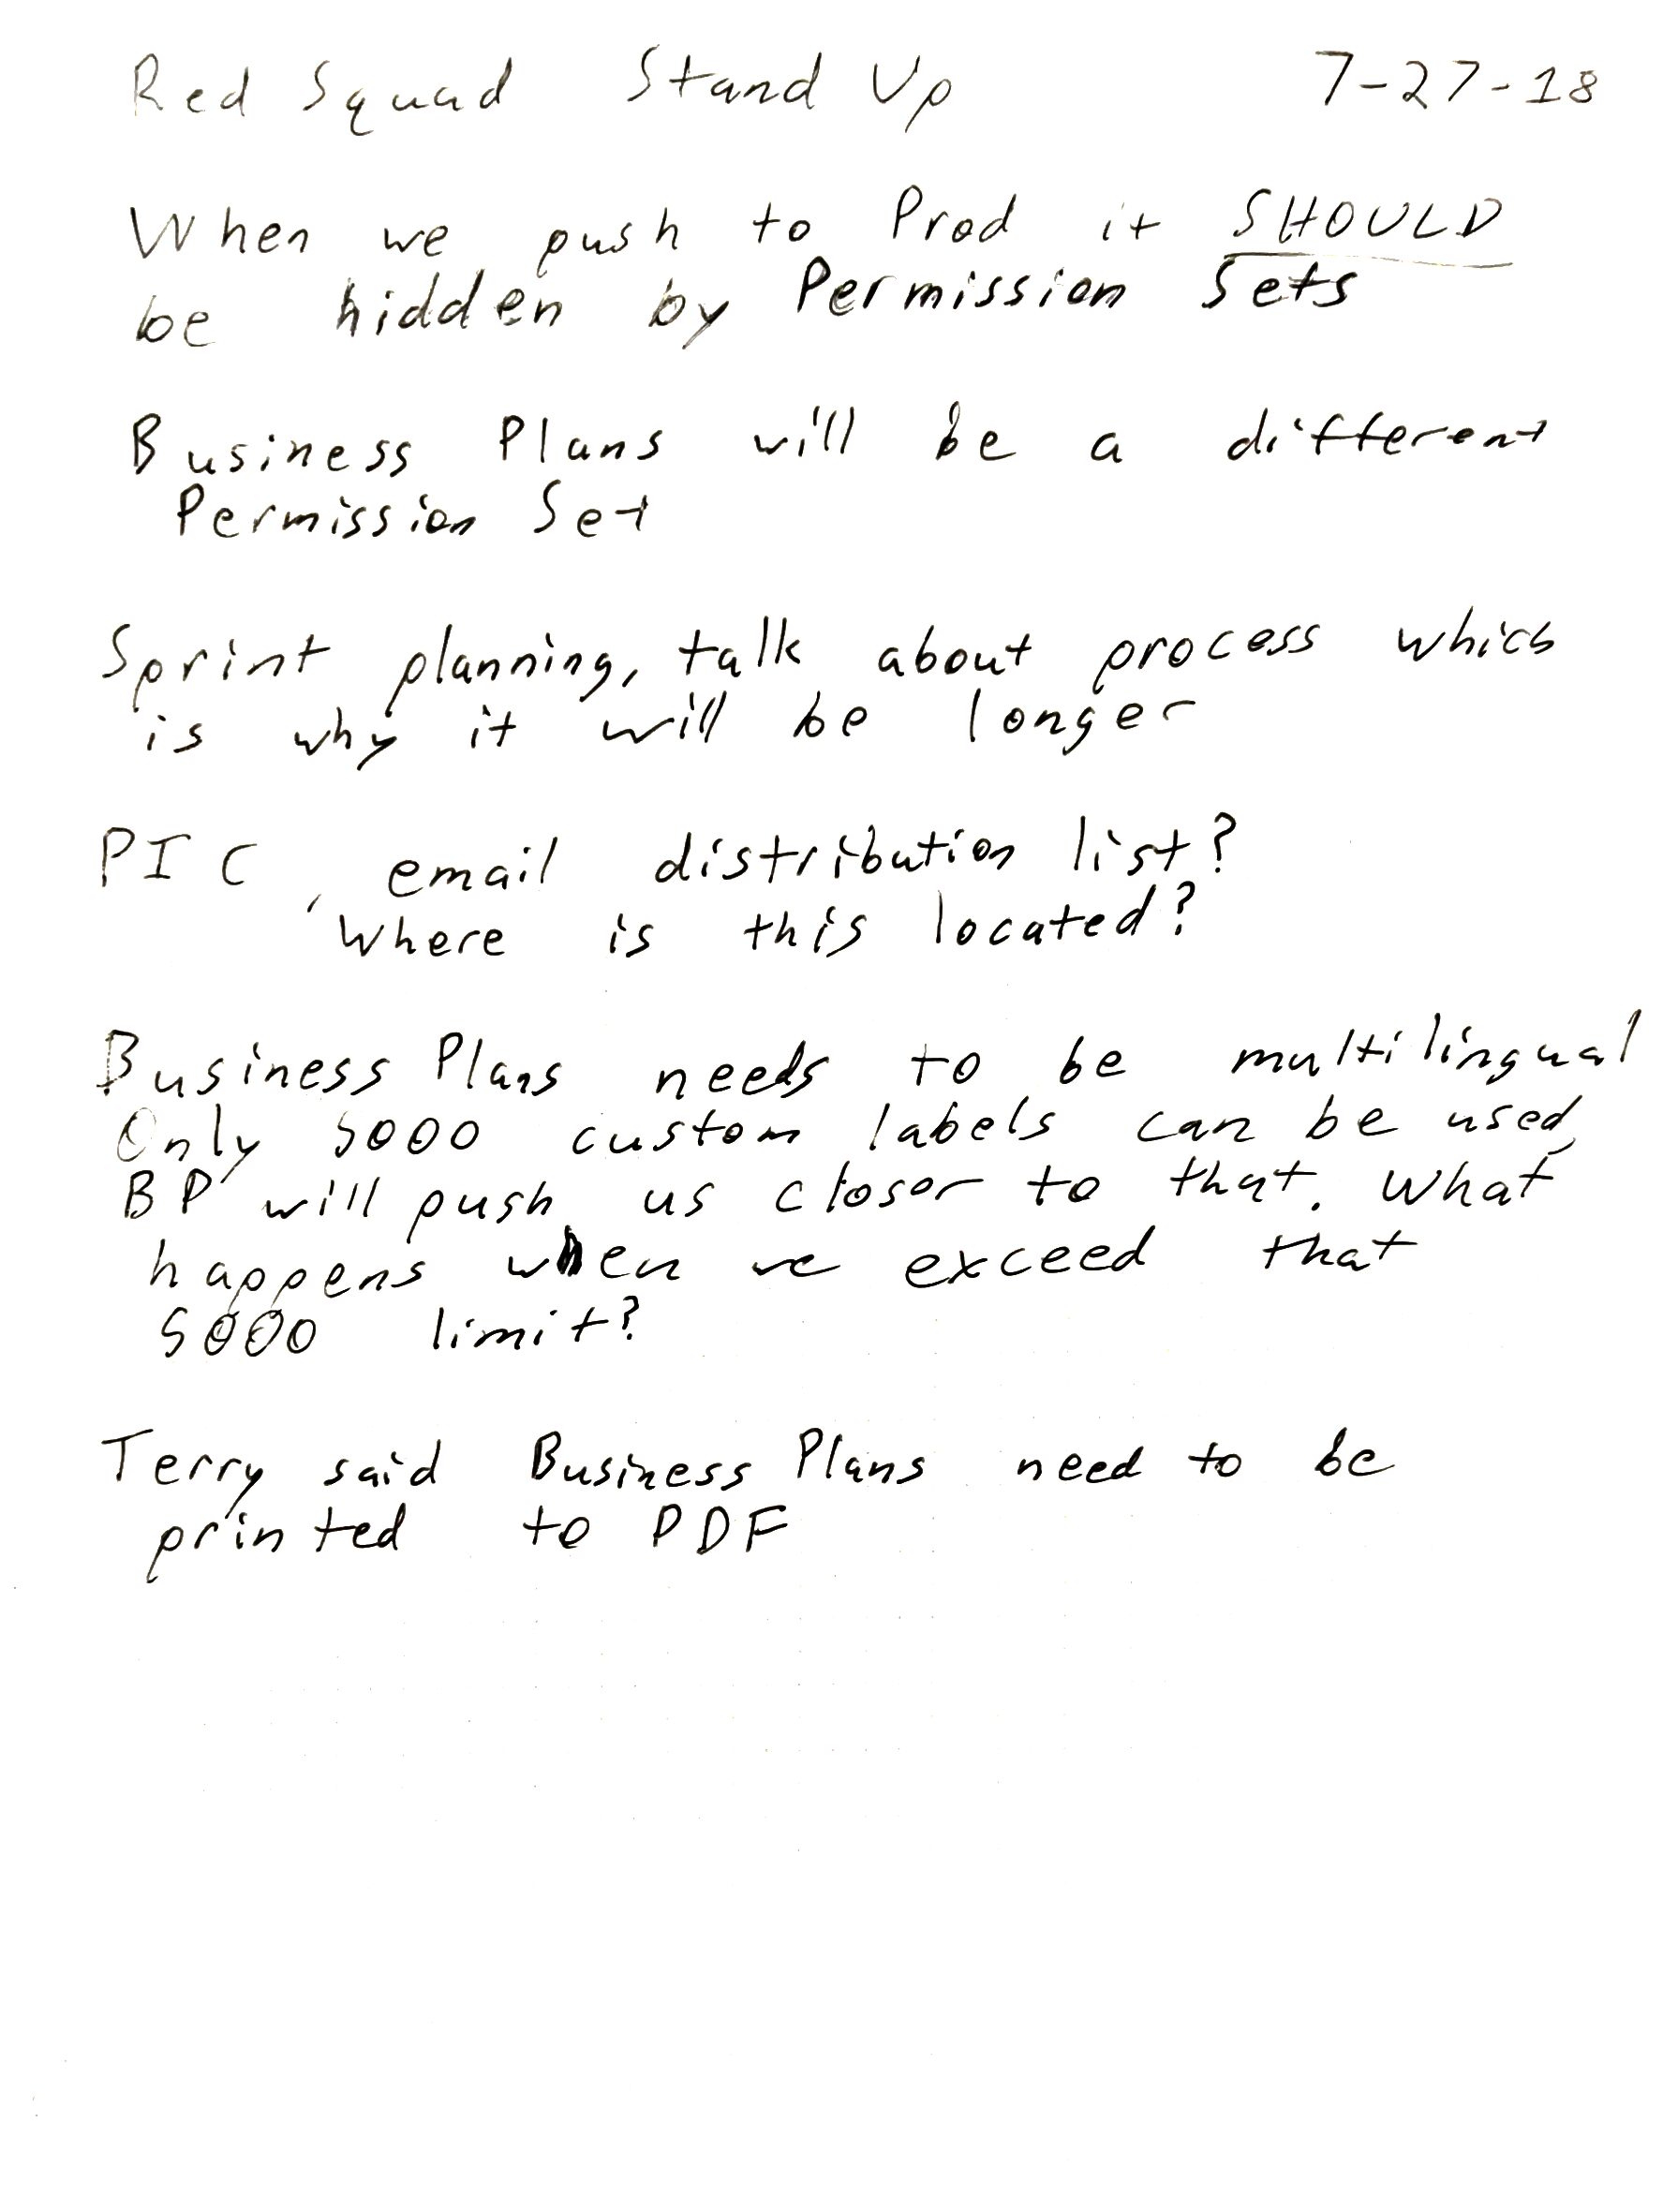 Red Squad Stand Up 7-27-18
When we push to Prod it SHOULD
be hidden by Permission Sets
Business Plans will be a different
Permission Set
Sprint planning, talk about process which
is why it will be longer
PIC, email distribution list?
Where is this located?
Business Plans needs to be multilingual
Only 5000 custom labels can be used,
BP will push us closer to that. What
happens when we exceed that
5000 limit?
Terry said Business Plans need to be
printed to PDF